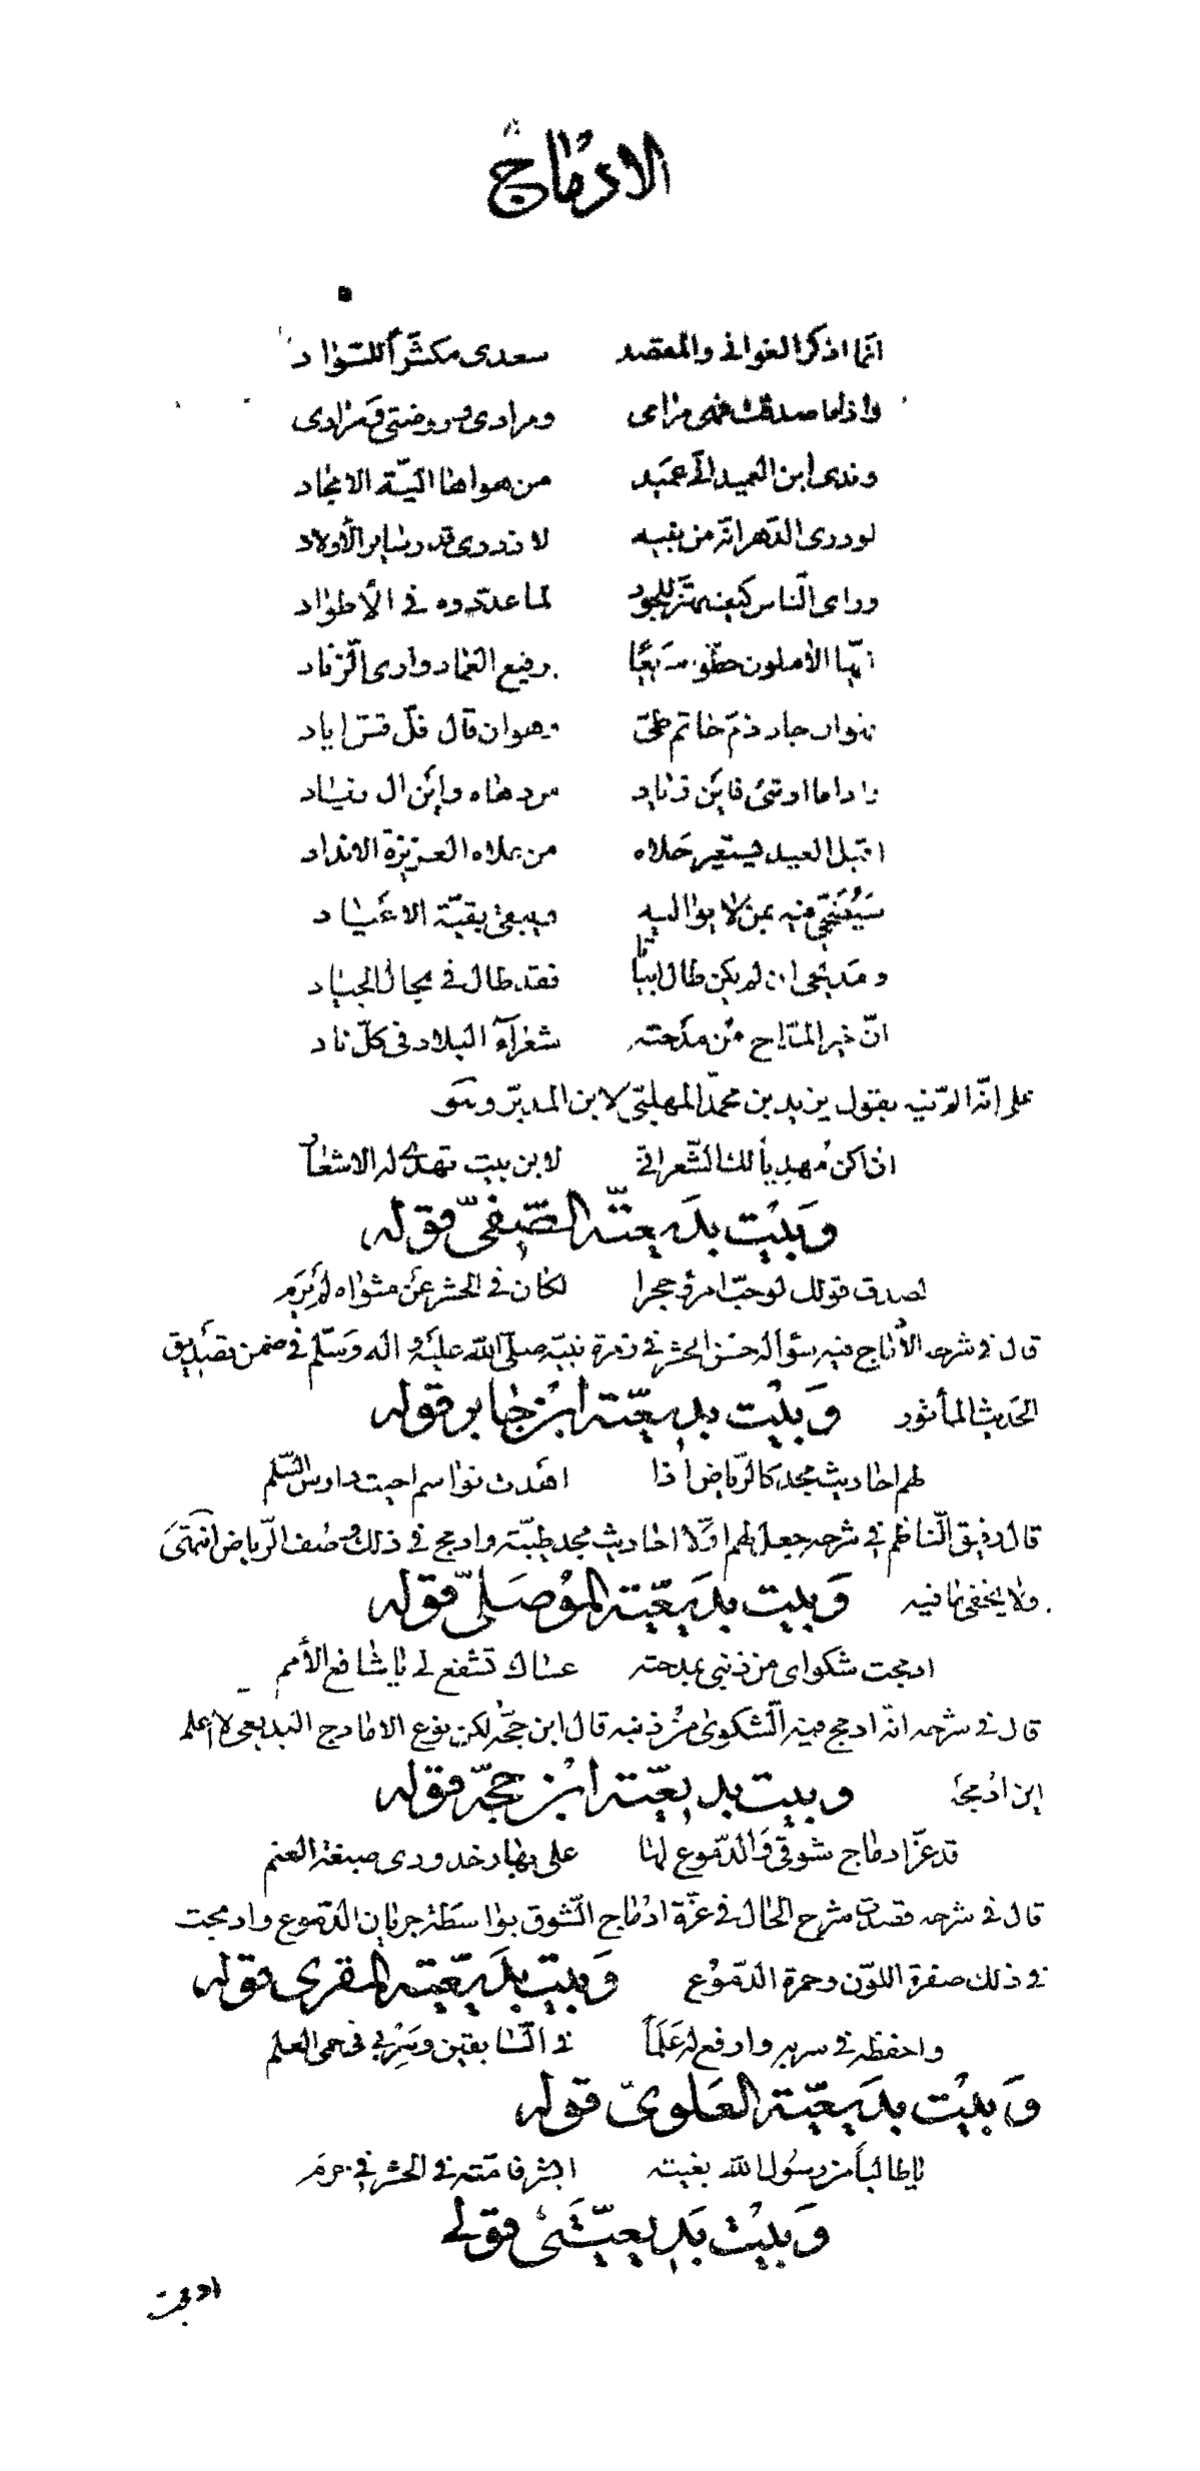 الادماج
انّما اذكر الغوانى والمقصد سعدى مكثّراً للسّواد
واذا ما صدقت فهى مرامى ومرادى وروضتى ومرادى
وندى ابن العميد انّى عميد من هواها اليّة الامجاد
لو درى الدّهر انّه من بنيه لازدرى قدر ساير الأولاد
وراى النّاس كيف يهتزّ للجود لما عدّدوه فى الأطواد
ايّها الآملون حطّوا سريعًا برفيع العماد وارى الزّناد
فهو ان جاد ذمّ حاتم طىّ وهو ان قال فلّ قسّ اياد
واذا ما ارتئى فاين زياد من دهاه واين ال زياد
اقبل العيد يستعير حلاه من علاه العزيزة الانداد
سيُضَحّى فيه بمن لا يواليه ويبقى بقيّة الاعياد
ومديحى ان لم يكن طال ابياتا فقد طال فى مجال الجياد
انّ خير المدّاح من مدحته شعرآء البلاد فى كلّ ناد
على انّه الم فيه بقول يزيد بن محمّد المهلبىّ لابن المدبّر وهو
ان اكن مُهدِياً لك الشّعر انّى لابن بيت تهدى له الاشعار
وَبَيْت بديعيّته الصّفىّ قوله
لصدق قولك لو حبّ امرؤ حجرا لكان فى الحشر عن مثواه لم يَرِمِ
قال فى شرحه الأدماج فيه سؤاله حسن الحشر فى زمرة نبيّه صلّى اللّه عليه واله وسَلّم فى ضمن تصديق
الحديث المأثور وَبَيْت بديعيّته ابن جابر قوله
لهم احاديث مجد كالرّياض اذا اهدت نواسم احيت دارس النّسم
قال رفيق النّاظم فى شرحه جعل لهم اوّلا احاديث مجد طيبّة وادمج فى ذلك وصف الرّياض انتهى
ولا يخفى ما فيه وَبيت بديعيّته الموْصَلىّ قوله
ادمجت شكواى من ذنبى بمدحته عساك تشفع لى يا شافع الأمم
قال فى شرحه انّه ادمج فيه الشّكوى من ذنبه قال ابن حجّة لكن نوع الادماج البديعى لا اعلم
اين ادْمجه وبيت بديعيّته ابن حجّة قوله
قد عزّ ادماج شوقى وَالدّموع لها على بهار خدودى صبغة العنم
قال فى شرحه قصدت شرح الحال فى عزّة ادْماج الشّوق بواسطة جريان الدّموع وادمجت
فى ذلك صفرة اللوّن وحمرة الدّموع وَبيت بديعيّته المقرى قوله
واحفظه فى سربه وارفع له عَلَماً فى السّابقين وسِرْ بى فى حمى العلم
وَبَيْت بديعيّته العَلوىّ قوله
يا طالباً من رسُول اللّه بغيته ابشر فامّته فى الحشر فى حرم
وَبَيْت بَديعيّتى قولى
ادمجت